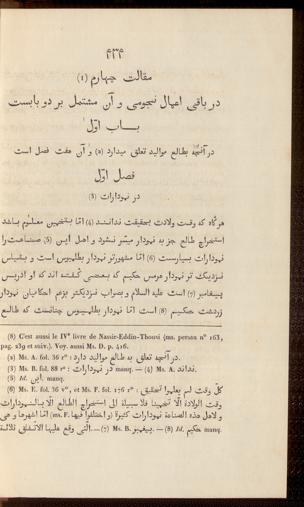 ۴۳۴
مقالت چهارم (1)
در باقی اعمال نجومی و آن مشتمل بر دو بابست
بــاب اوّل
در آنچه بطالع مواليد تعلق ميدارد (2) و آن هفت فصل است
فصل اوّل
در نمودارات (3)
هرگاه كه وقت ولادت بحقيقت ندانند (4) امّا بتخمين معلوم باشد
استخراج طالع جز به نمودار ميسّر نشود و اهل اين (5) صناعت را
نمودارات بسيارست (6) امّا مشهورتر نمودار بطلميوس است و بقياس
نزديكتر نمودار هرمس حكيم كه بعضى گفته اند كه او ادريس
پيغامبر (7) است عليه السلام و بصواب نزديكتر بزعم احكاميان نمودار
زردشت حكيم (8) است امّا نمودار بطلميوس چنانست كه طالع
(8) C'est aussi le IVe livre de Nassir-Eddin-Thousi (ms. persan n° 163,
pag. 239 et suiv.). Voy. aussi Ms. D. p. 426.
(2) Ms. A. fol. 36 r° : در آنچه تعلق به طالع مواليد دارد.
(3) Ms. B. fol. 88 r° : در نمودارات manq. — (4) Ms. A. نداند.
(5) Id. اين manq.
(6) Ms. E. fol. 36 v°, et Ms. F. fol. 176 r° : كلّ وقت لم يعلموا تحقيق
وقت الولادة الّا تخمينا فلا سبيلة الى استخراج الطالع الّا بالنمودارات
ولاهل هذه الصناعة نمودارات كثيرة (واختلفوا فيها ms. F.) امّا اشهرها وهى
الّتى وقع عليها الاتّفاق ثلاثة.— (7) Ms. B. پيغمبر.— (8) Id. حكيم manq.